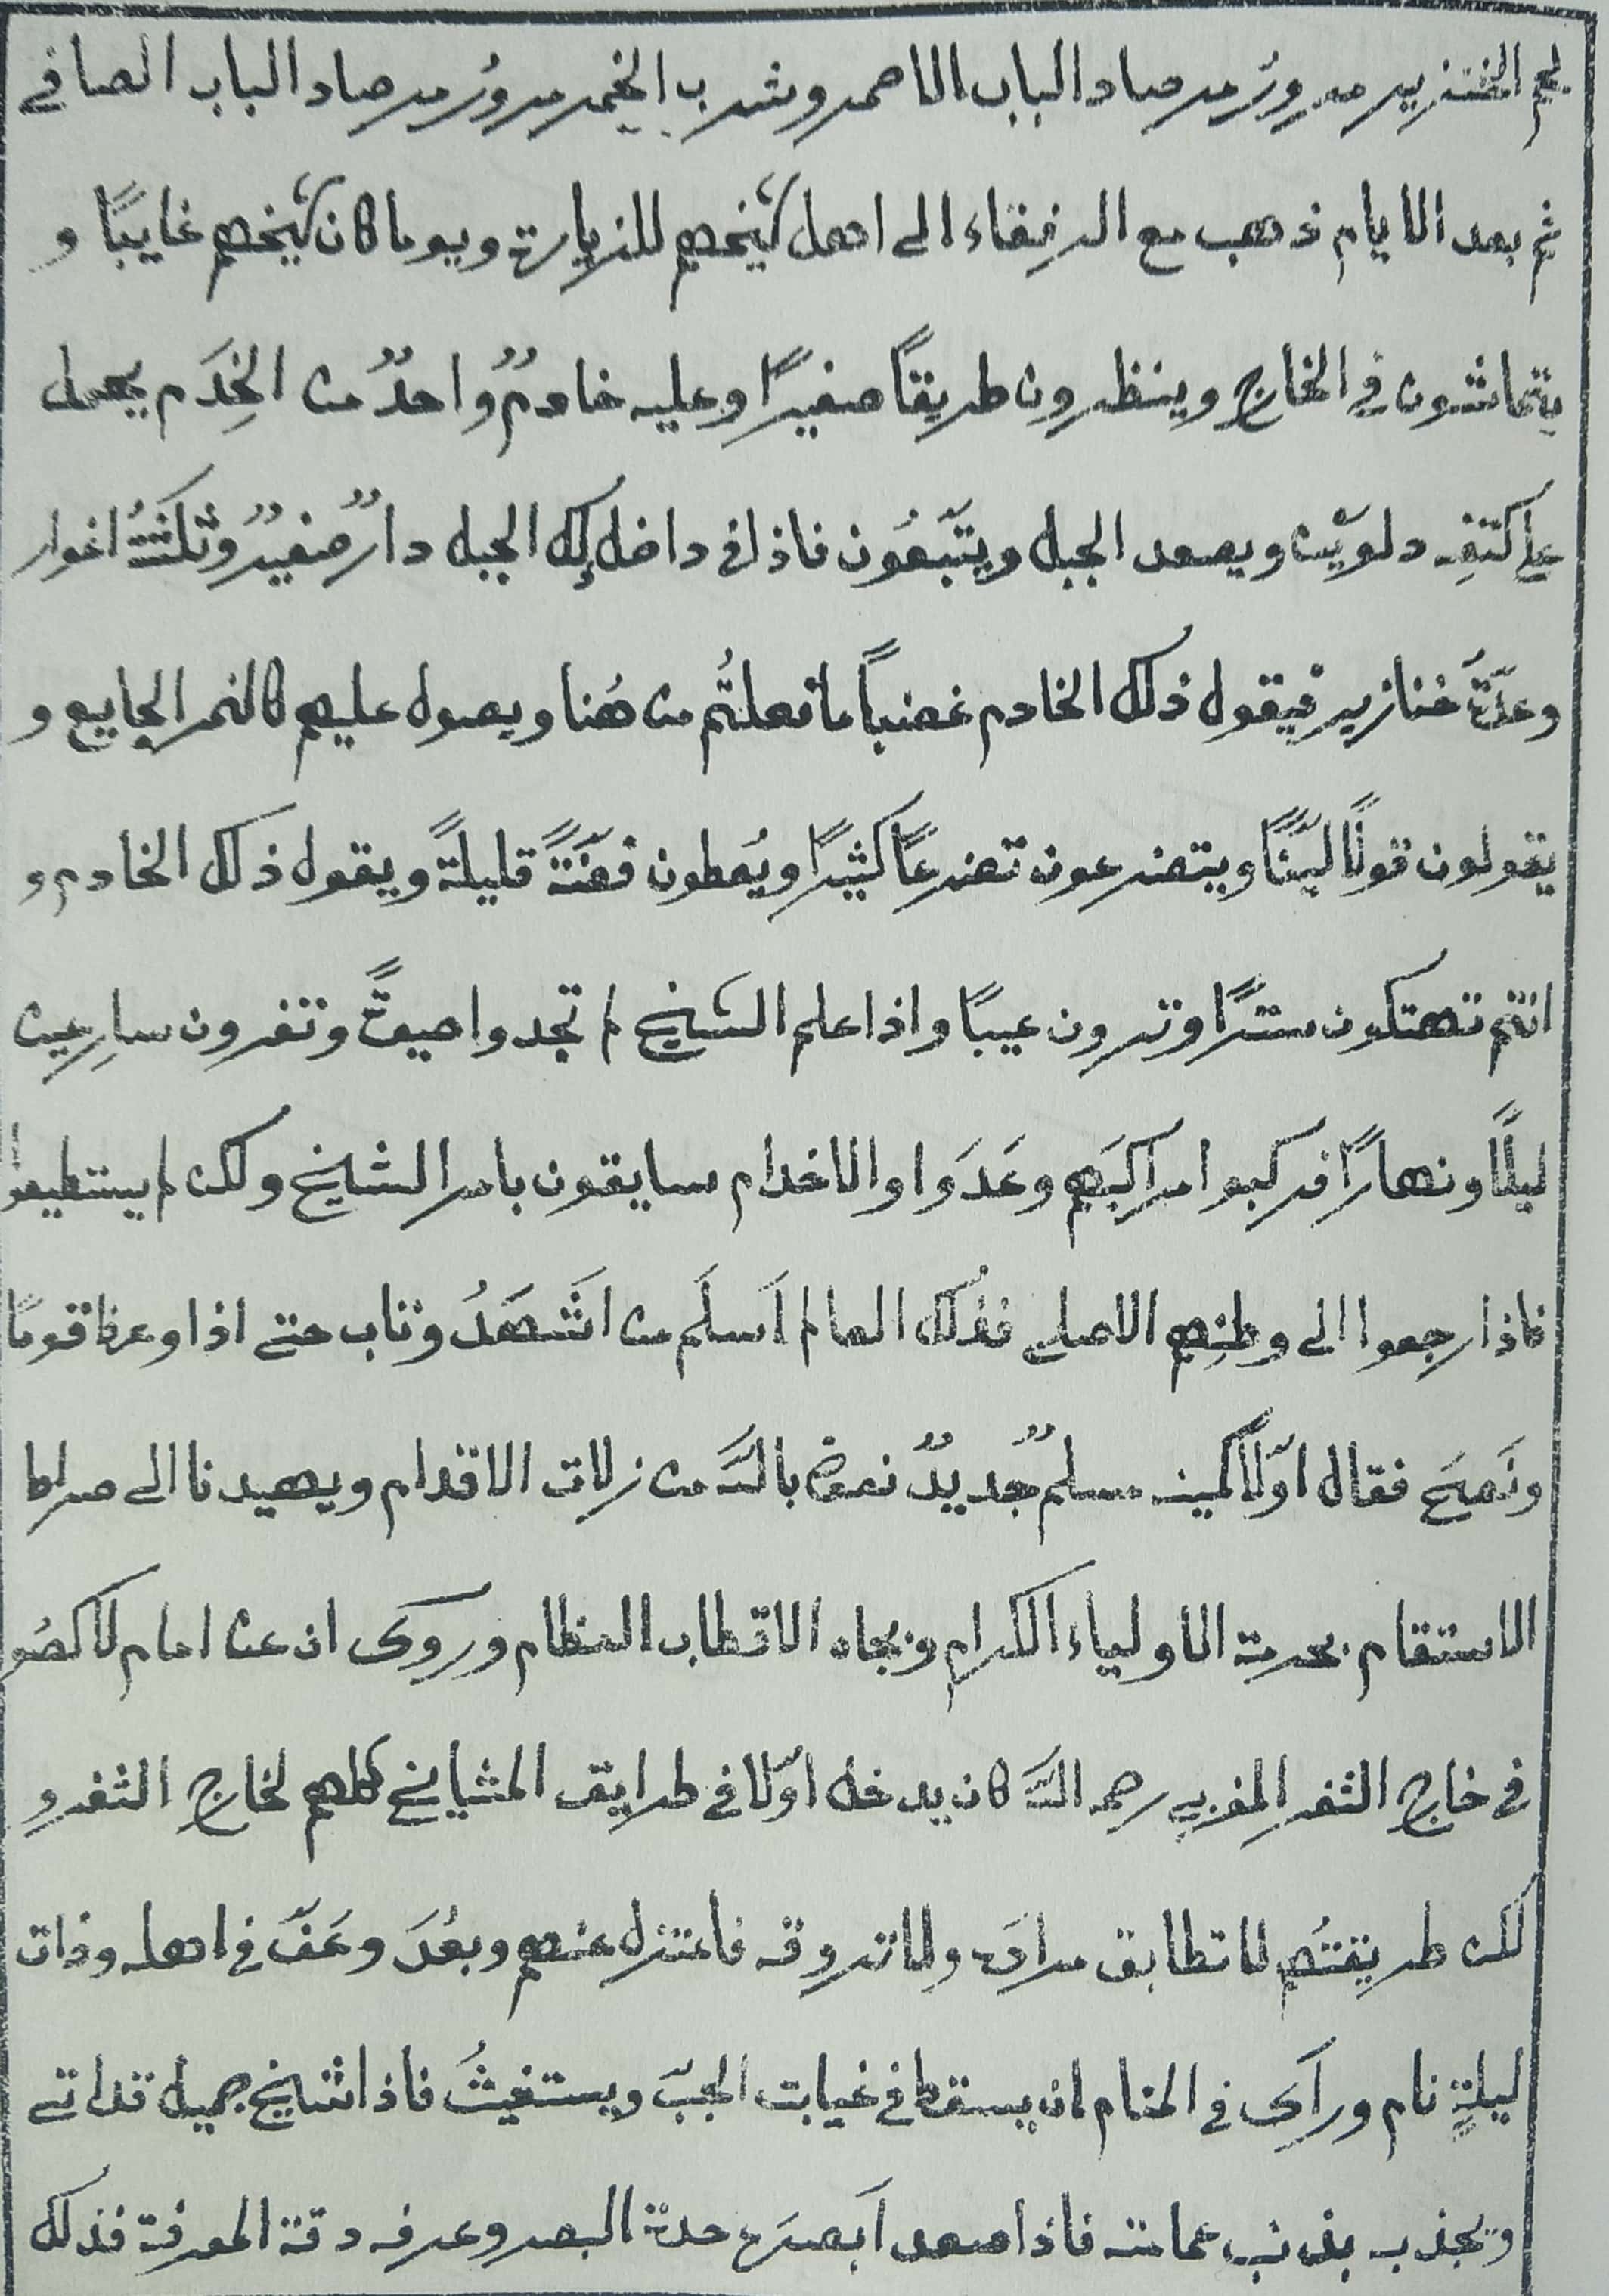 لحم الخنزير مرورُ مرصاد الباب الاحمر وشرب الخمر مرورُ مرصاد الباب الصافي
ثم بعد الايام ذهب مع الرفقاء الى اهل شيخهم للزيارة ويوما كان شيخهم غايبًا و
يتماشون في الخارج وينظرون طريقًا صغيرًا وعليه خادمٌ واحدٌ من الخِدَم يحمل
على كتفِه دلوَيْن ويصعد الجبل ويتّبَعُون فاذا في داخل ذلك الجبل دارٌ صغيرٌ وثلثةُ اغوار
وعدّةُ خنازير فيقول ذلك الخادم غضبًا ما فعلتُم من هُنا ويصول عليهم كالنمر الجايع و
يقولون قولًا ليّنًا ويتضرعون تضرعًا كثيرًا ويُعطون فضّةً قليلةً ويقول ذلك الخادم و
انتم تهتكون سترًا وترون عيبًا واذا علم الشيخ لم تجدوا حيوةً وتفرون سارِعين
ليلًا ونهارًا فركبوا مراكبَهم وعَدَوا والاخدام سايقون بامر الشيخ ولكن لم يستطيعوا
فاذا رجعوا الى وطنِهم الاصلي فذلك العالم اَسلَم من اشَهَدُ وتاب حتى اذا وعظ قومًا
ونَصَحَ فقال اوّلًا كمين مسلمٌ جديدٌ نعوذ بالله من زلات الاقدام ويهدينا الى صراط
الاستقام بحرمة الاولياء الكرام وبجاه الاقطاب العظام وروى ان عن امام
في خارج الثغر المغربي رحمه الله كان يدخل اوّلًا في طرايق المشيايخ كلهم لخارج الثغر و
لكن طريقتُهم لا تطابق مرادَه ولا تروقه فاعتزل عنهم وبعُدَ وعَفّ في اهله وذات
ليلةٍ نام ورآى في المنام ان يسقط في غيابت الجبّ ويستغيثُ فاذا شيخ جميل قد اتى
ويجذب بذنب عمامته فاذا صعد اَبصرَه حدة البصر وعرفه دقة المعرفة فذلك